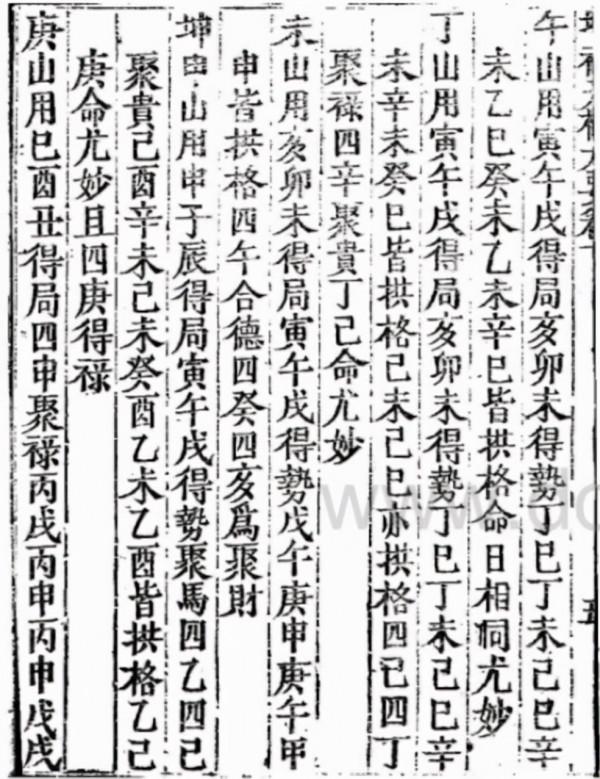 午山用寅午戌得局亥卯未得勢丁巳丁未己巳辛
未乙巳癸未乙未辛巳皆拱格命日相同尤妙
丁山用寅午戌得局亥卯未得勢丁巳丁未己巳辛
未辛未癸巳皆拱格己未己巳亦拱格四巳四丁
聚祿四辛聚貴丁己命尤妙
未山用亥卯未得局寅午戌得勢戊午庚申庚午甲
申皆拱格四午合德四癸四亥爲聚財
坤山用申子辰得局寅午戌得勢聚馬四乙四己
聚貴己酉辛未己未癸酉乙未乙酉皆拱格乙己
庚命尤妙且四庚得祿
庚山用巳酉丑得局四申聚祿丙戌丙申丙申戊戌